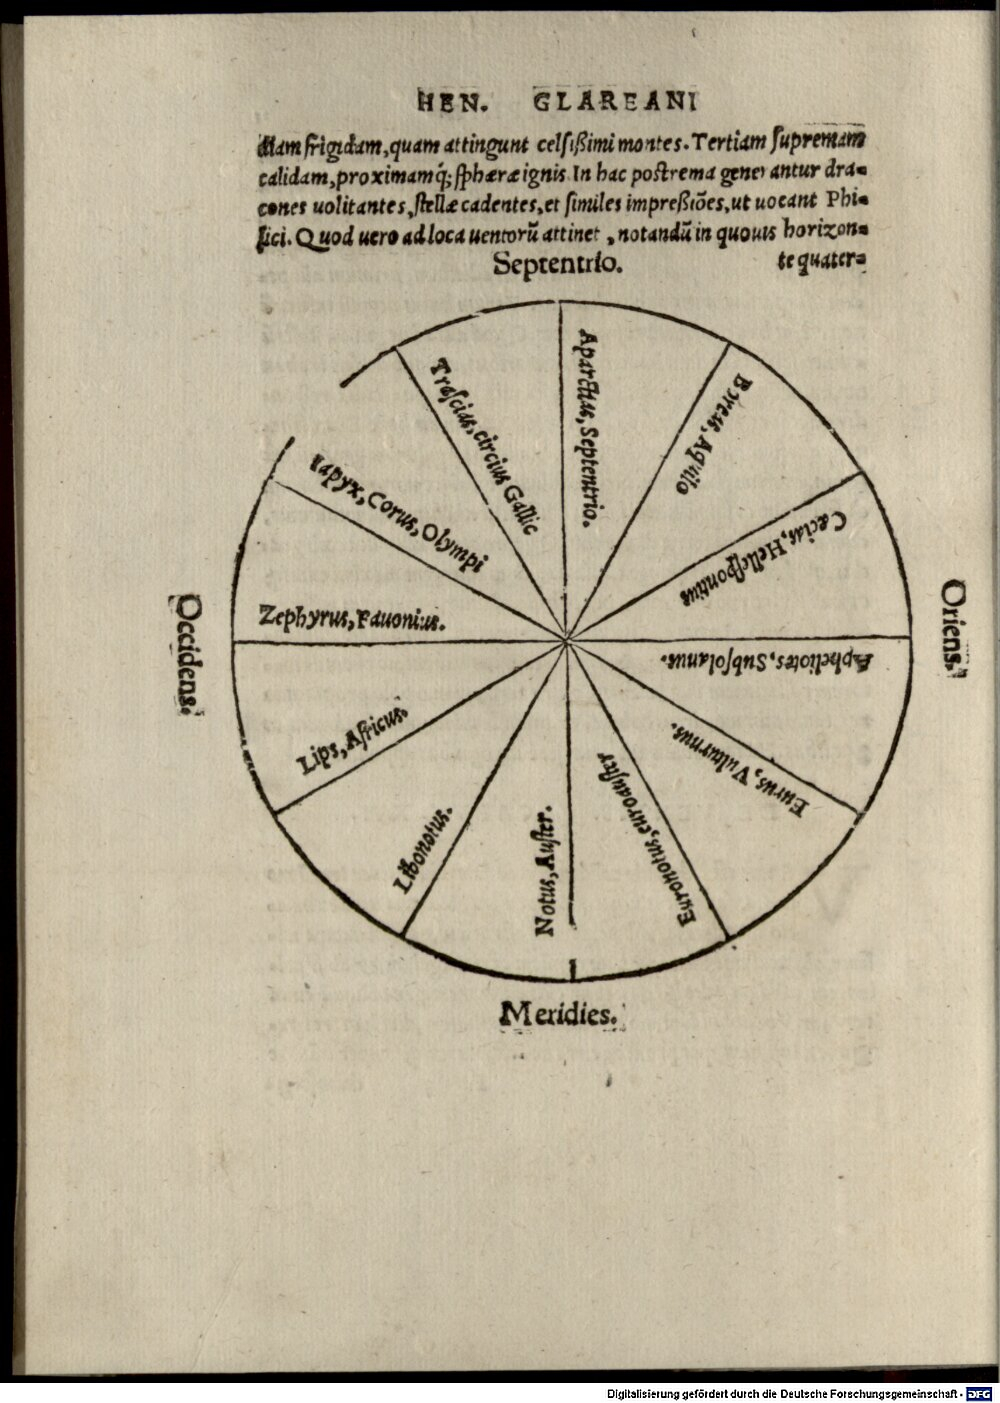 HEN. GLAREANI
diam frigidam, quam attingunt celsißimi montes. Tertiam supremam
calidam, proximamq́; sphæræ ignis. In hac postrema generantur dra-
cones uolitantes, stellæ cadentes, et similes impreßiões, ut uocant Phi-
sici. Quod uero ad loca uentorũ attinet, notandũ in quouis horizon-
te quater-
Septentrio.
Aparctias, Septentrio.
Boreas, Aquilo
Cæcias, Hellespontius
Apheliotes, Subsolanus.
Eurus, Vulturnus.
Euronotus, euroauster
Notus, Auster.
Libonotus.
Lips, Africus.
Zephyrus, Fauonius.
Iapyx, Corus, Olympi
Trascias, circius Gallic
Oriens.
Occidens.
Meridies.
Digitalisierung gefördert durch die Deutsche Forschungsgemeinschaft - DFG